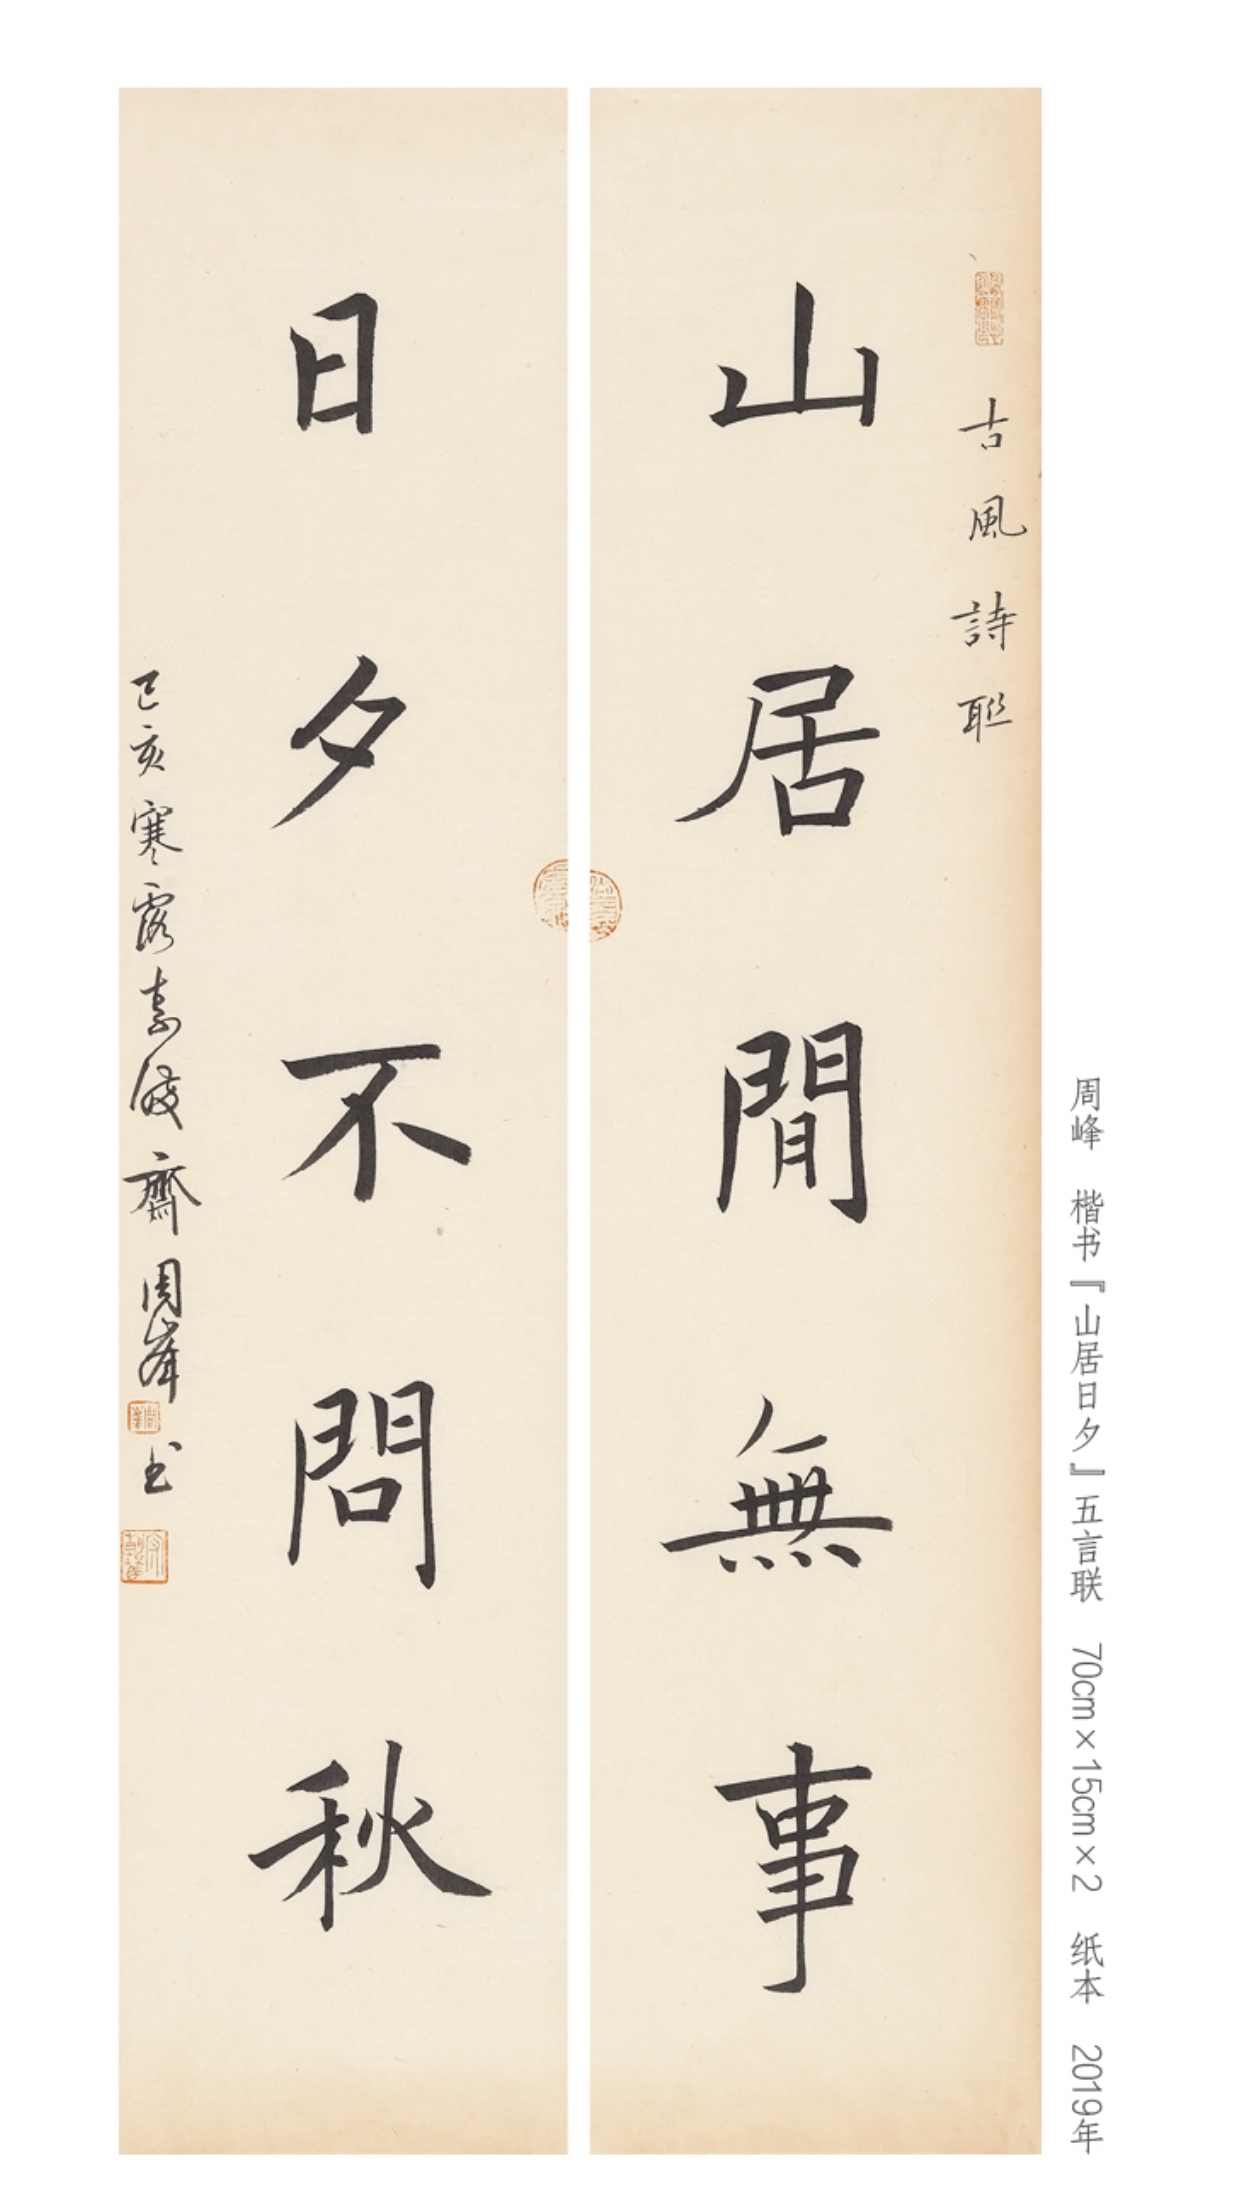 古風詩聫
山居閒無事
日夕不問秋
己亥寒露素履齋周峯书
周峰　楷书『山居日夕』五言联　70cm×15cm×2　纸本　2019年